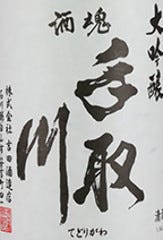 大吟醸
酒魂
手取川
てどりがわ
株式会社吉田酒造店